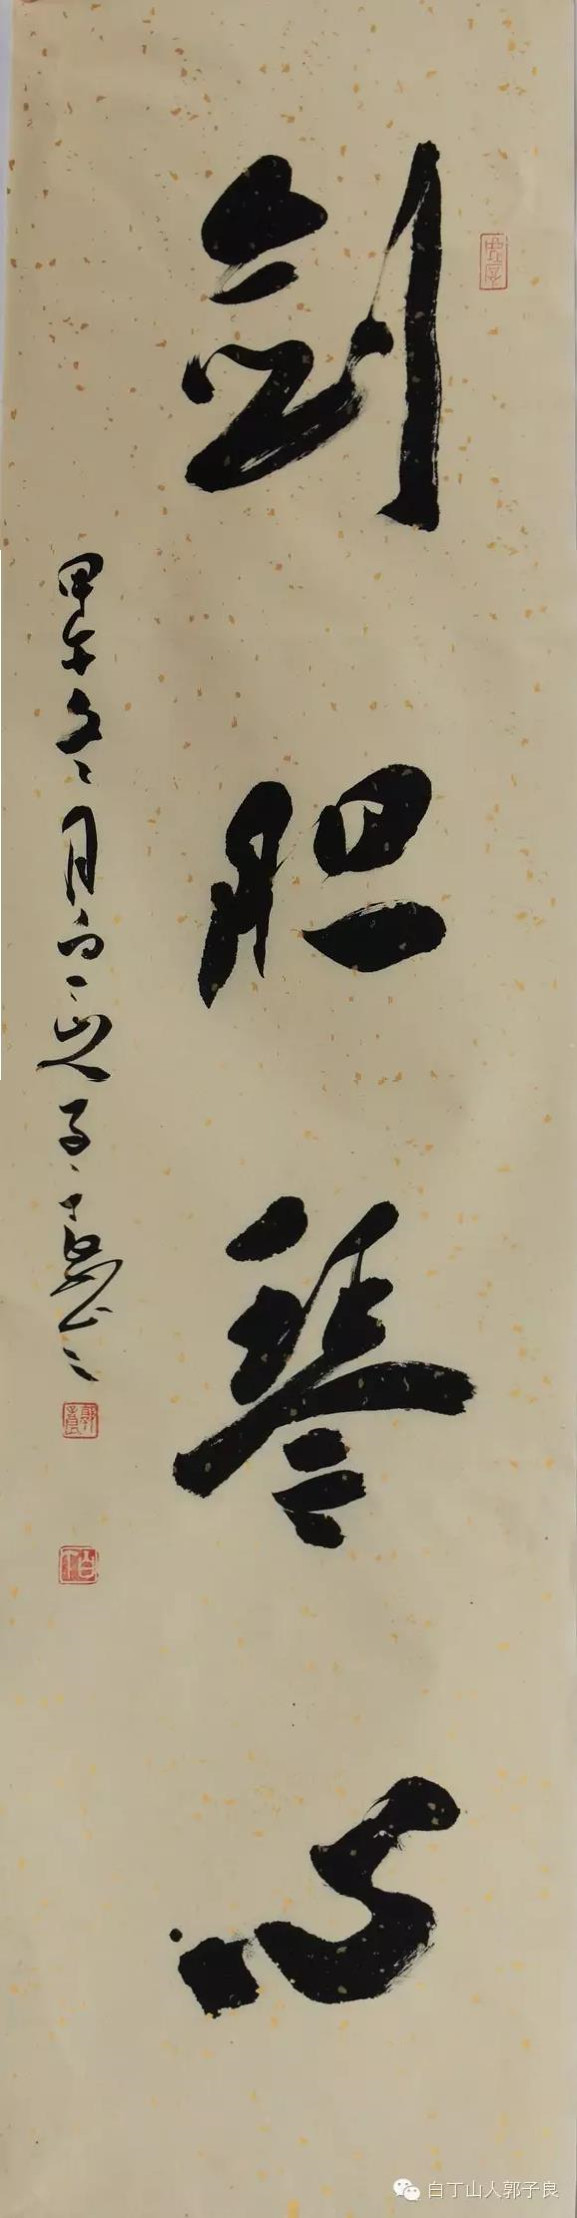 剑胆琴心
甲午冬月白丁山人子良书
白丁山人郭子良